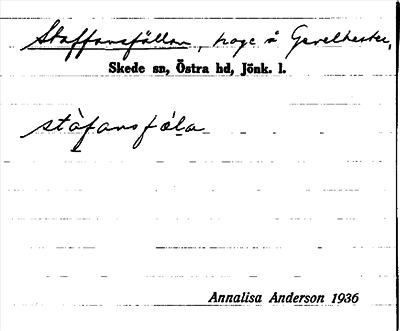 Staffansfållan, hage å Gavelhester,
Skede sn, Östra hd, Jönk. l.
stàfansfåla
Annalisa Anderson 1936